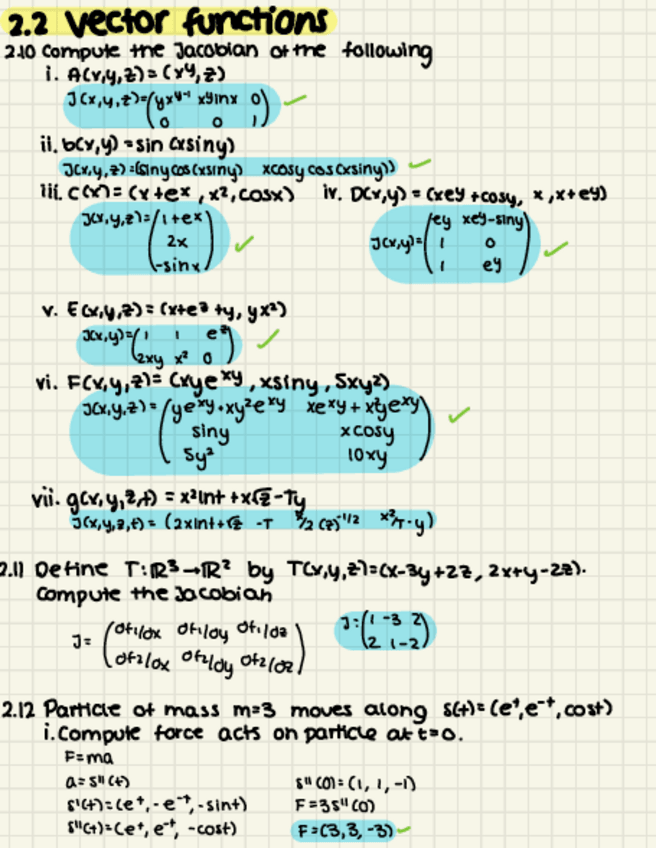 2.2 vector functions
2.10 Compute the Jacobian of the following
i. A(x,y,z) = (x^y, z)
J(x,y,z)=(yx^(y-1) x^y lnx 0
0 0 1)
ii. b(x,y) = sin(xsiny)
J(x,y,z)=(siny cos(xsiny) xcosy cos(xsiny))
iii. C(x) = (x+e^x, x², cosx) iv. D(x,y) = (xe^y + cosy, x, x+e^y)
J(x,y,z)=(1+e^x
2x
-sinx)
J(x,y)=(e^y xe^y-siny
1 0
1 e^y)
v. E(x,y,z) = (x+e^z+y, yx²)
J(x,y)=(1 1 e^z
2xy x² 0)
vi. F(x,y,z) = (xye^xy, xsiny, 5xy²)
J(x,y,z) = (ye^xy+xy²e^xy xe^xy+x²ye^xy
siny xcosy
5y² 10xy)
vii. g(x,y,z,t) = x²lnt + x√z - Ty
J(x,y,z,t) = (2xlnt+√z -T x/2 (z)^-1/2 x²/T - y)
2.11 Define T: ℝ³→ℝ² by T(x,y,z)=(x-3y+2z, 2x+y-2z).
Compute the Jacobian
J= (∂f1/∂x ∂f1/∂y ∂f1/∂z
∂f2/∂x ∂f2/∂y ∂f2/∂z)
J=(1 -3 2
2 1 -2)
2.12 Particle of mass m=3 moves along s(t)=(e^t, e^-t, cost)
i. Compute force acts on particle at t=0.
F=ma
a=s''(t)
s'(t)=(e^t, -e^-t, -sint)
s''(t)=(e^t, e^-t, -cost)
s''(0)=(1, 1, -1)
F=3s''(0)
F=(3,3,-3)